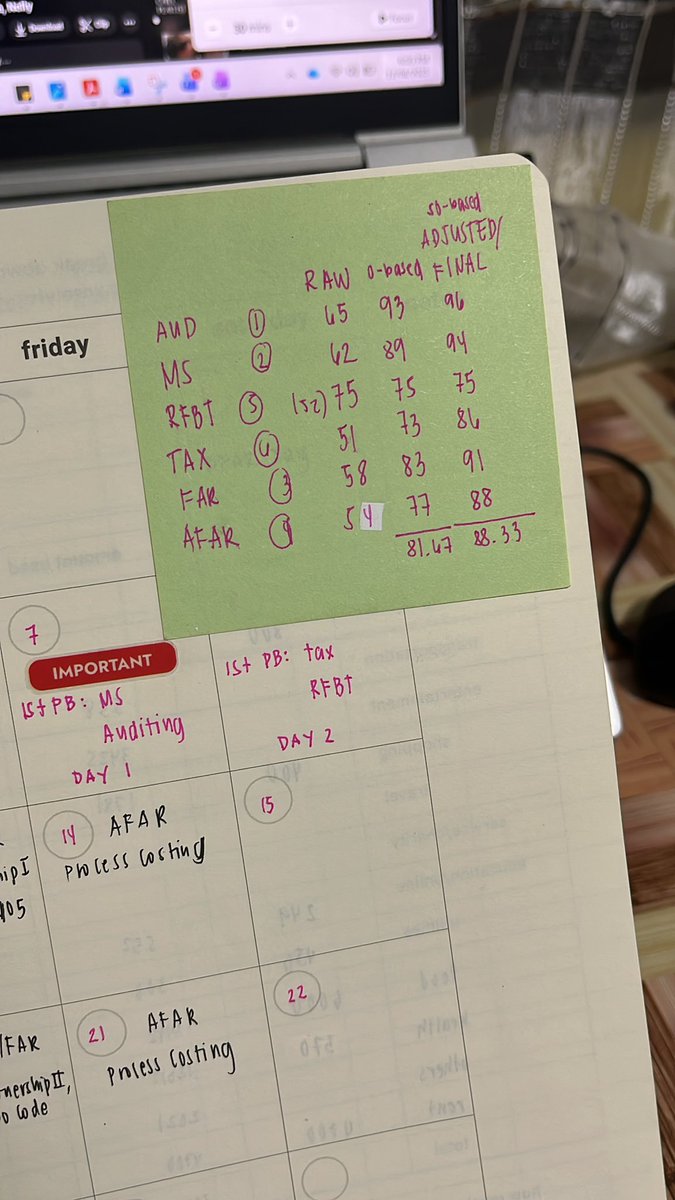 , Nelly
Download Clip
30 mins
Focus
50-based
ADJUSTED/
RAW 0-based FINAL
AUD 1 65 93 96
MS 2 62 89 94
RFBT 5 (52) 75 75 75
TAX 6 51 73 86
FAR 3 58 83 91
AFAR 4 54 77 88
81.67 88.33
friday
7
IMPORTANT
1st PB: MS
Auditing
DAY 1
1st PB: tax
RFBT
DAY 2
14 AFAR
Process Costing
15
hip I
405
21 AFAR
Process Costing
22
/FAR
tnership II,
o code